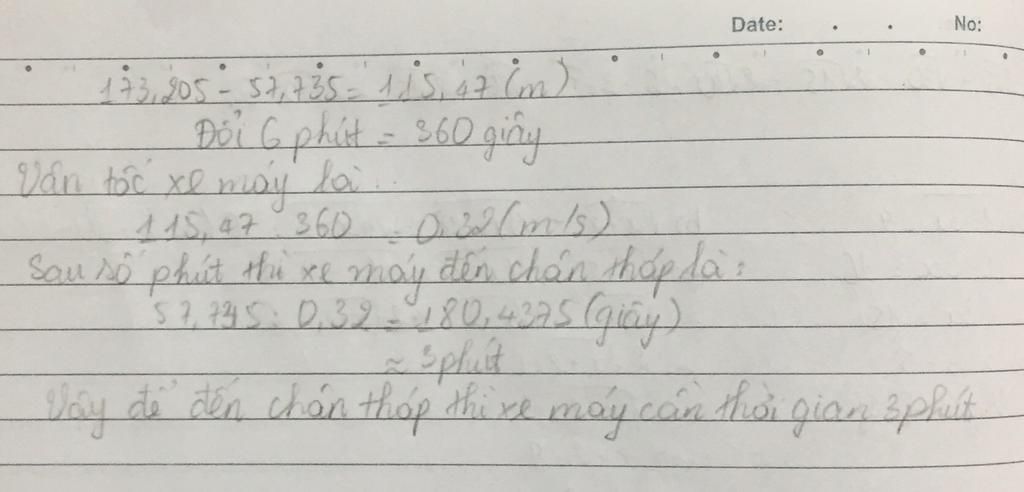 Date: . . No:
173,205 - 57,735 = 115,47 (m)
Đổi 6 phút = 360 giây
Vận tốc xe máy là:
115,47 : 360 = 0,32 (m/s)
Sau số phút thì xe máy đến chân tháp là:
57,735 : 0,32 = 180,4375 (giây)
≈ 3 phút
Vậy để đến chân tháp thì xe máy cần thời gian 3 phút